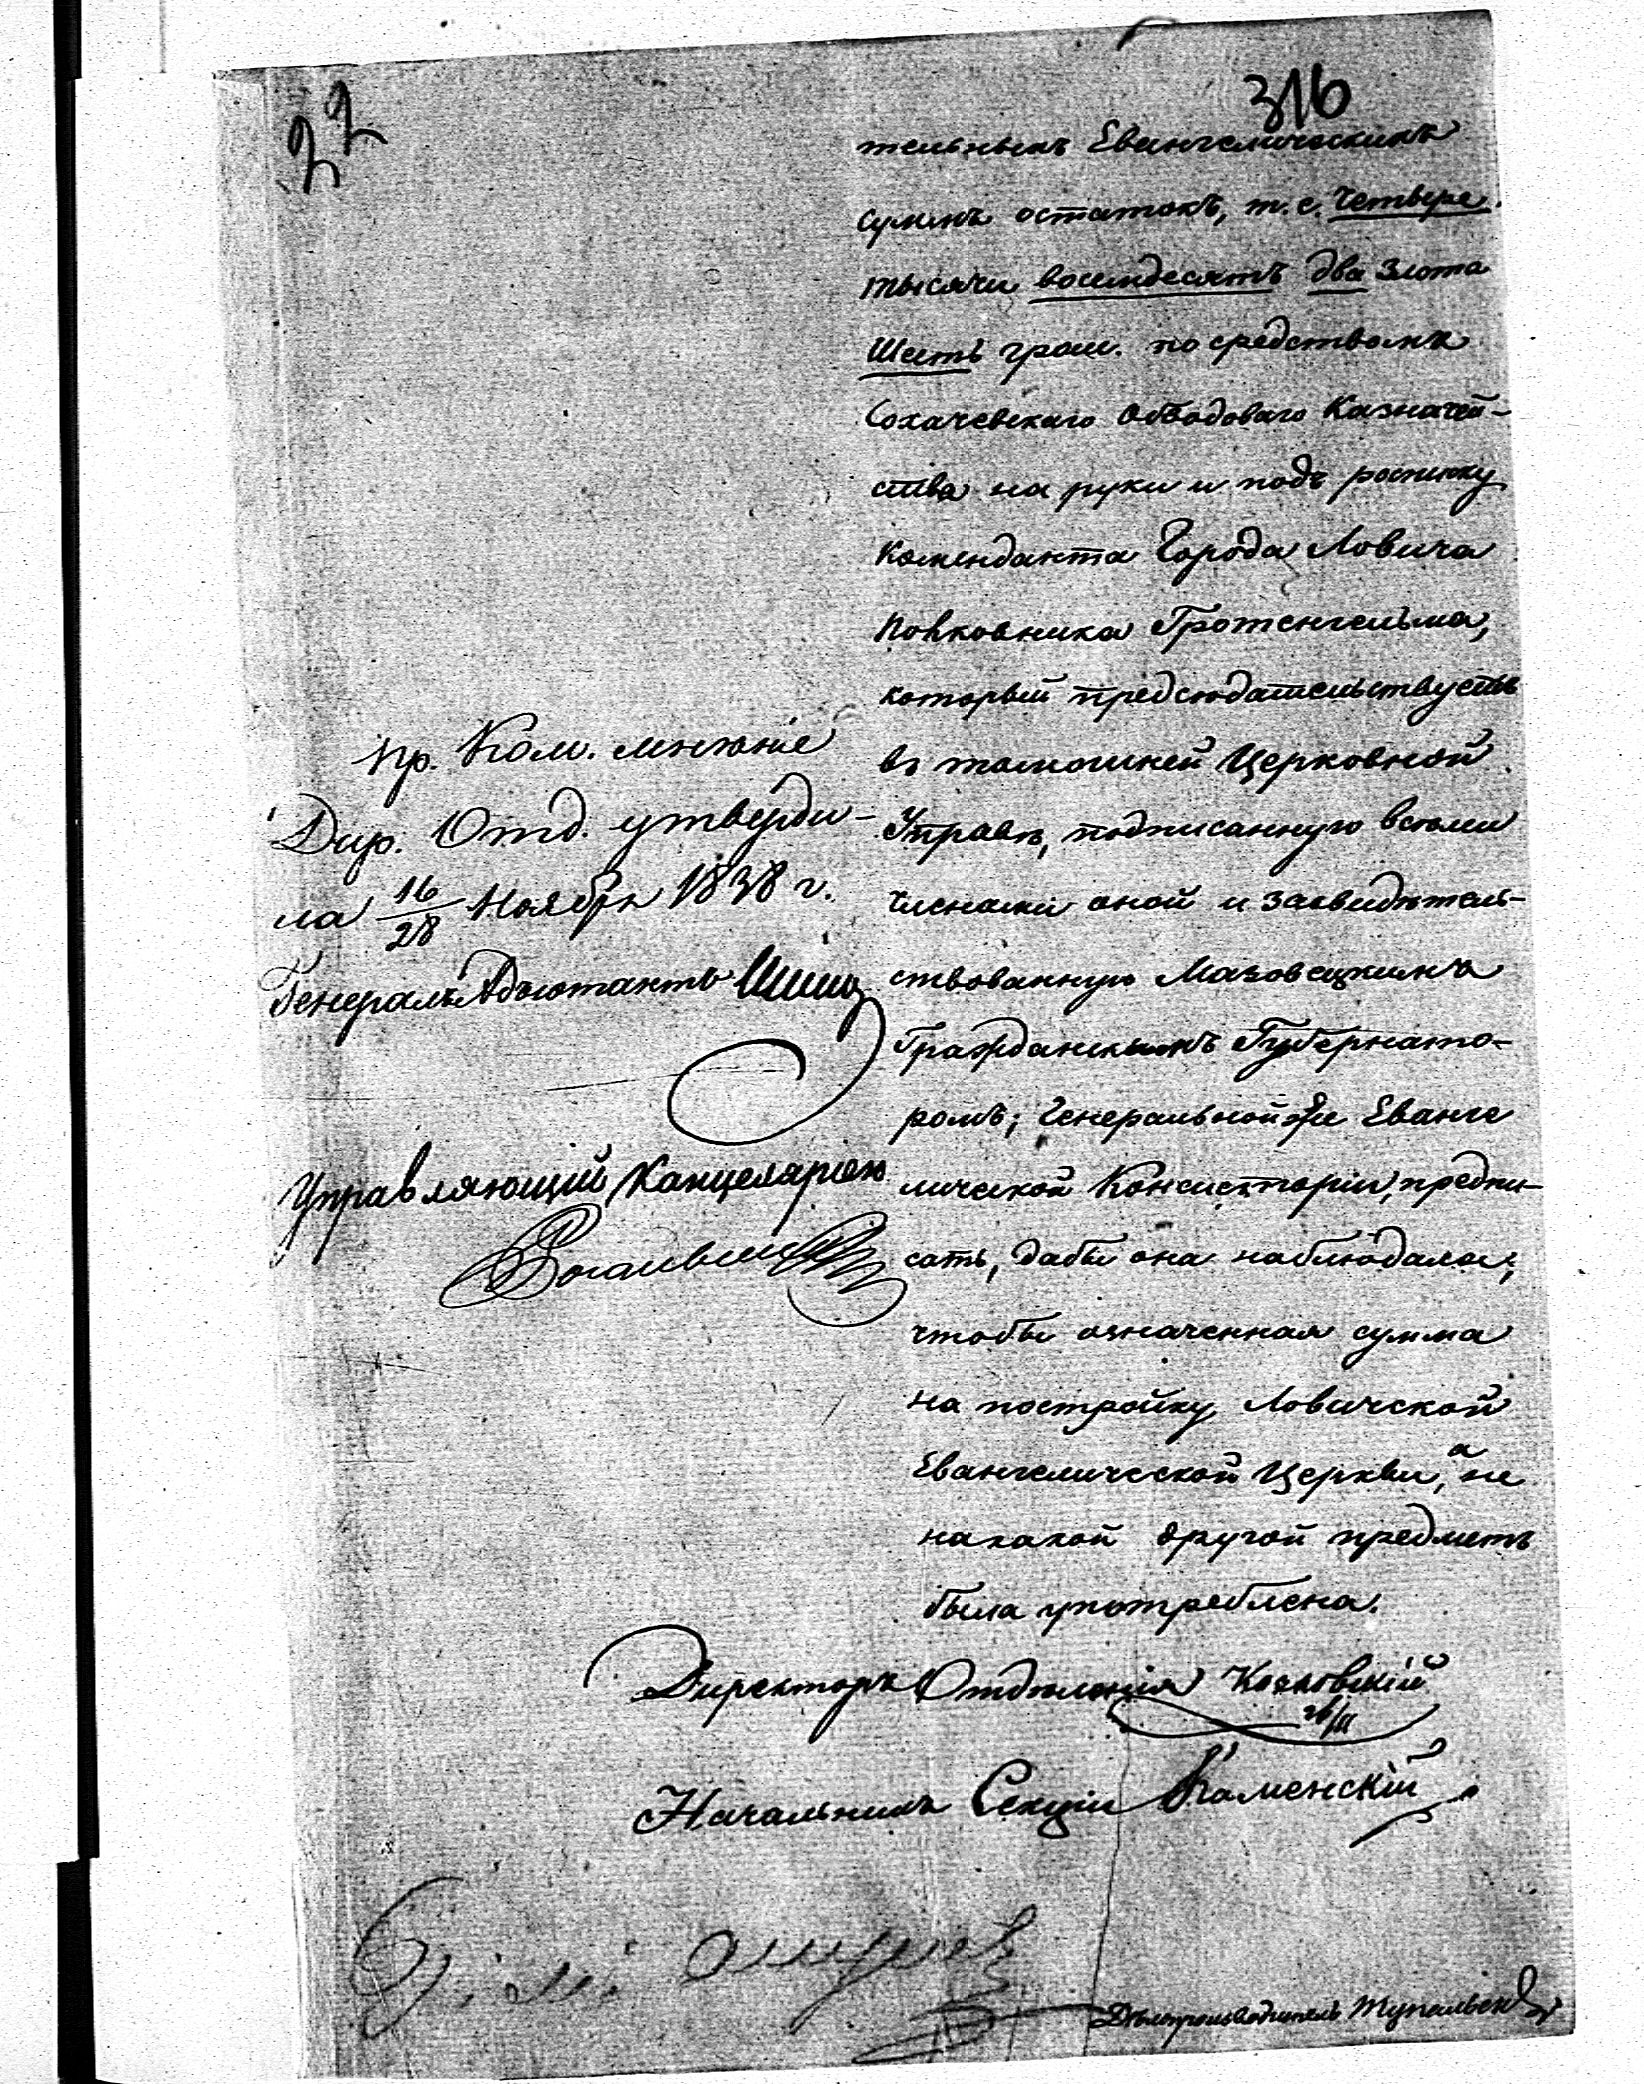 22
316
тельныхъ Евангелическихъ
суммъ остатокъ, т. е. Четвере
тысячи восемдесятъ два Злота
Шесть грош. посредствомъ
Сохачевскаго Обводоваго Казначей-
ства на руки и подъ росписку
Коменданта Города Ловича
Полковника Гротенгельма,
который предсѣдательствуетъ
въ тамошней Церковной
Управѣ, подписанную всѣми
членами оной и засвидѣтель-
ствованную Мазовецкимъ
Гражданскимъ Губернато-
ромъ; Генеральной же Еванге
лической Консисторіи, предпи-
сать, дабы она наблюдала,
чтобы означенная сумма
на постройку Ловичской
Евангелической Церкви, а не
на какой другой предметъ
была употреблена.
Пр. Ком. мнѣніе
Дир. Отд. утверди-
ла 16/28 Ноября 1838 г.
Генералъ Адъютантъ
Управляющій Канцеляріею
Директоръ Отдѣленія Козловскій
Начальникъ Секціи Каменскій
Дѣлопроизводитель